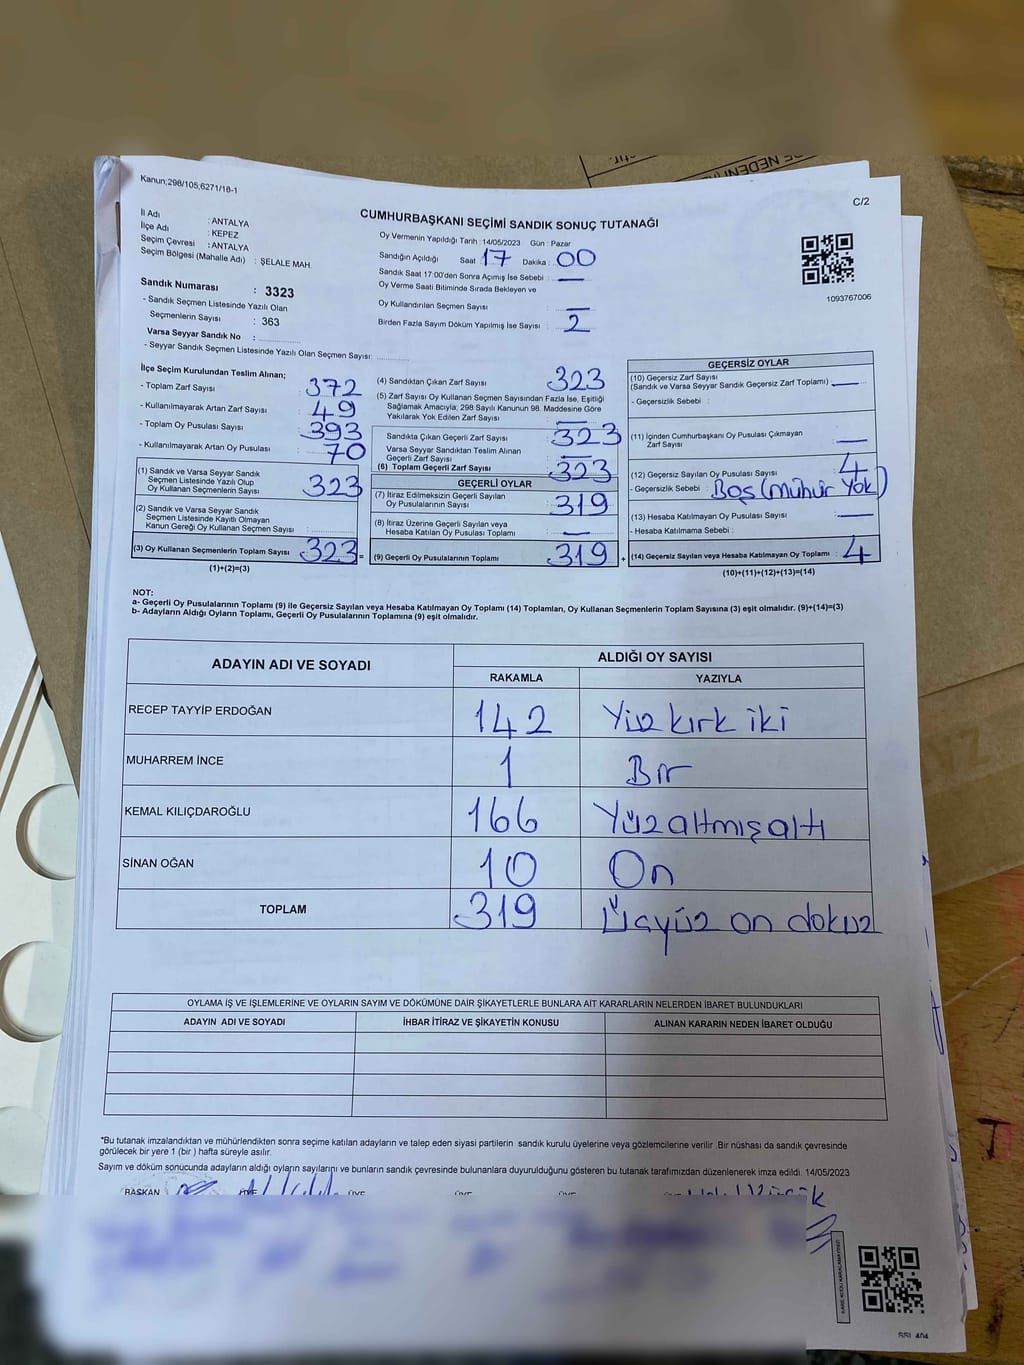 Kanun;298/105,6271/18-1
C/2
CUMHURBAŞKANI SEÇİMİ SANDIK SONUÇ TUTANAĞI
İl Adı : ANTALYA
İlçe Adı : KEPEZ
Seçim Çevresi : ANTALYA
Seçim Bölgesi (Mahalle Adı) : ŞELALE MAH.
Oy Vermenin Yapıldığı Tarih : 14/05/2023 Gün : Pazar
Sandığın Açıldığı Saat 17 Dakika : 00
Sandık Saat 17:00'den Sonra Açımış İse Sebebi : —
Oy Verme Saati Bitiminde Sırada Bekleyen ve
Oy Kullandırılan Seçmen Sayısı : —
Birden Fazla Sayım Döküm Yapılmış İse Sayısı : 2
1093767006
Sandık Numarası : 3323
- Sandık Seçmen Listesinde Yazılı Olan
Seçmenlerin Sayısı : 363
Varsa Seyyar Sandık No :
- Seyyar Sandık Seçmen Listesinde Yazılı Olan Seçmen Sayısı:
İlçe Seçim Kurulundan Teslim Alınan;
- Toplam Zarf Sayısı : 372
- Kullanılmayarak Artan Zarf Sayısı : 49
- Toplam Oy Pusulası Sayısı : 393
- Kullanılmayarak Artan Oy Pusulası : 70
(1) Sandık ve Varsa Seyyar Sandık
Seçmen Listesinde Yazılı Olup
Oy Kullanan Seçmenlerin Sayısı : 323
(2) Sandık ve Varsa Seyyar Sandık
Seçmen Listesinde Kayıtlı Olmayan
Kanun Gereği Oy Kullanan Seçmen Sayısı :
(3) Oy Kullanan Seçmenlerin Toplam Sayısı : 323 =
(1)+(2)=(3)
(4) Sandıktan Çıkan Zarf Sayısı : 323
(5) Zarf Sayısı Oy Kullanan Seçmen Sayısından Fazla İse, Eşitliği
Sağlamak Amacıyla; 298 Sayılı Kanunun 98. Maddesine Göre
Yakılarak Yok Edilen Zarf Sayısı : —
Sandıkta Çıkan Geçerli Zarf Sayısı : 323
Varsa Seyyar Sandıktan Teslim Alınan
Geçerli Zarf Sayısı : —
(6) Toplam Geçerli Zarf Sayısı : 323
GEÇERLİ OYLAR
(7) İtiraz Edilmeksizin Geçerli Sayılan
Oy Pusulasının Sayısı : 319
(8) İtiraz Üzerine Geçerli Sayılan veya
Hesaba Katılan Oy Pusulası Toplamı : —
(9) Geçerli Oy Pusulalarının Toplamı : 319 +
GEÇERSİZ OYLAR
(10) Geçersiz Zarf Sayısı
(Sandık ve Varsa Seyyar Sandık Geçersiz Zarf Toplamı) : —
- Geçersizlik Sebebi :
(11) İçinden Cumhurbaşkanı Oy Pusulası Çıkmayan
Zarf Sayısı : —
(12) Geçersiz Sayılan Oy Pusulası Sayısı : 4
- Geçersizlik Sebebi : Boş (mühür yok)
(13) Hesaba Katılmayan Oy Pusulası Sayısı : —
- Hesaba Katılmama Sebebi :
(14) Geçersiz Sayılan veya Hesaba Katılmayan Oy Toplamı : 4
(10)+(11)+(12)+(13)=(14)
NOT:
a- Geçerli Oy Pusulalarının Toplamı (9) ile Geçersiz Sayılan veya Hesaba Katılmayan Oy Toplamı (14) Toplamları, Oy Kullanan Seçmenlerin Toplam Sayısına (3) eşit olmalıdır. (9)+(14)=(3)
b- Adayların Aldığı Oyların Toplamı, Geçerli Oy Pusulalarının Toplamına (9) eşit olmalıdır.
ADAYIN ADI VE SOYADI ALDIĞI OY SAYISI
RAKAMLA YAZIYLA
RECEP TAYYİP ERDOĞAN 142 Yüz kırk iki
MUHARREM İNCE 1 Bir
KEMAL KILIÇDAROĞLU 166 Yüz altmış altı
SİNAN OĞAN 10 On
TOPLAM 319 Üçyüz on dokuz
OYLAMA İŞ VE İŞLEMLERİNE VE OYLARIN SAYIM VE DÖKÜMÜNE DAİR ŞİKAYETLERLE BUNLARA AİT KARARLARIN NELERDEN İBARET BULUNDUKLARI
ADAYIN ADI VE SOYADI İHBAR İTİRAZ VE ŞİKAYETİN KONUSU ALINAN KARARIN NEDEN İBARET OLDUĞU
*Bu tutanak imzalandıktan ve mühürlendikten sonra seçime katılan adayların ve talep eden siyasi partilerin sandık kurulu üyelerine veya gözlemcilerine verilir .Bir nüshası da sandık çevresinde
görülecek bir yere 1 (bir ) hafta süreyle asılır.
Sayım ve döküm sonucunda adayların aldığı oyların sayılarını ve bunların sandık çevresinde bulunanlara duyurulduğunu gösteren bu tutanak tarafımızdan düzenlenerek imza edildi. 14/05/2023
BAŞKAN ÜYE ÜYE ÜYE ÜYE